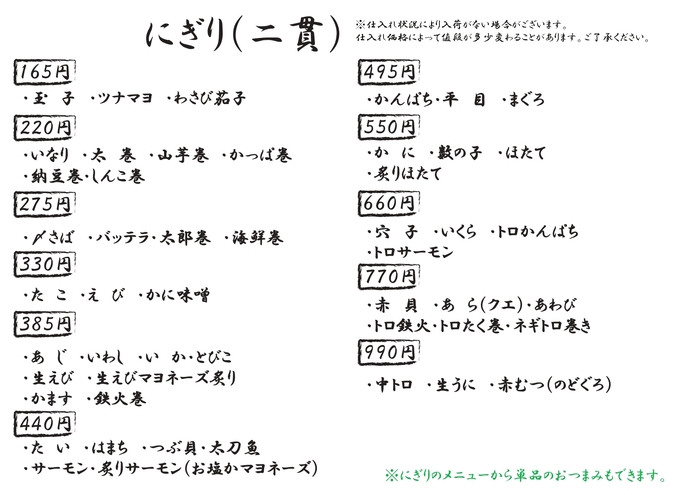 にぎり(二貫)
※仕入れ状況により入荷がない場合がございます。
仕入れ価格によって値段が多少変わることがあります。ご了承ください。
165円
・玉 子 ・ツナマヨ ・わさび茄子
220円
・いなり ・太 巻 ・山芋巻 ・かっぱ巻
・納豆巻・しんこ巻
275円
・〆さば ・バッテラ・太郎巻 ・海鮮巻
330円
・た こ ・え び ・かに味噌
385円
・あ じ ・いわし ・い か・とびこ
・生えび ・生えびマヨネーズ炙り
・かます ・鉄火巻
440円
・た い ・はまち ・つぶ貝・太刀魚
・サーモン・炙りサーモン(お塩かマヨネーズ)
495円
・かんぱち・平 目 ・まぐろ
550円
・か に ・数の子 ・ほたて
・炙りほたて
660円
・穴 子 ・いくら ・トロかんぱち
・トロサーモン
770円
・赤 貝 ・あ ら(クエ)・あわび
・トロ鉄火・トロたく巻・ネギトロ巻き
990円
・中トロ ・生うに ・赤むつ(のどぐろ)
※にぎりのメニューから単品のおつまみもできます。